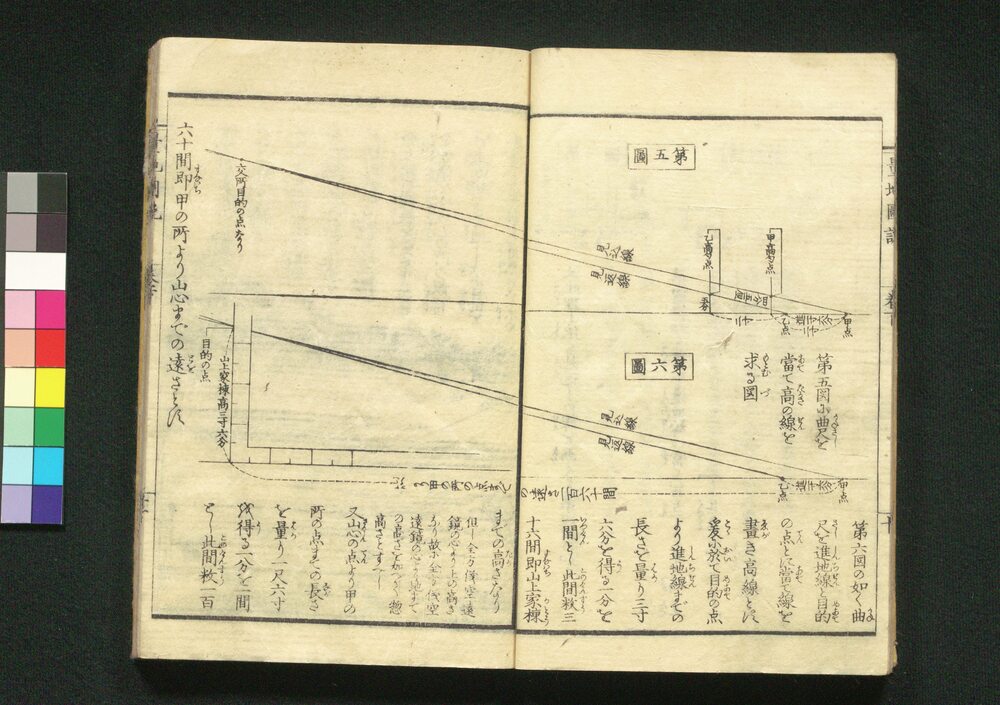 量地圖説
卷下
第五圖
見込線
見返線
甲髙の点
乙髙の点
甲点
乙点
二寸
第五図に曲尺を
當て高の線を
求る図
第六圖
見込線
見返線
甲点
乙点
第六図の如く曲
尺を進地線と目的
の点とに當て線を
畫き高線とす
爰に於て目的の点
より進地線までの
長さを量り三寸
六分を得る一分を
一間とし此間数三
十六間即山上家棟
までの高さなり
但し全方儀空遠
鏡の心より上の高さ
なり故に全方儀空
遠鏡の心より地まで
の高さを加へて惣
高さとすべし
又山心の点より甲の
所の点までの長さ
を量り一尺六寸
を得る一分を一間
とし此間数一百
六十間即甲の所より山心までの遠さとす
交所目的の点なり
目的の点
山上家棟高三寸六分